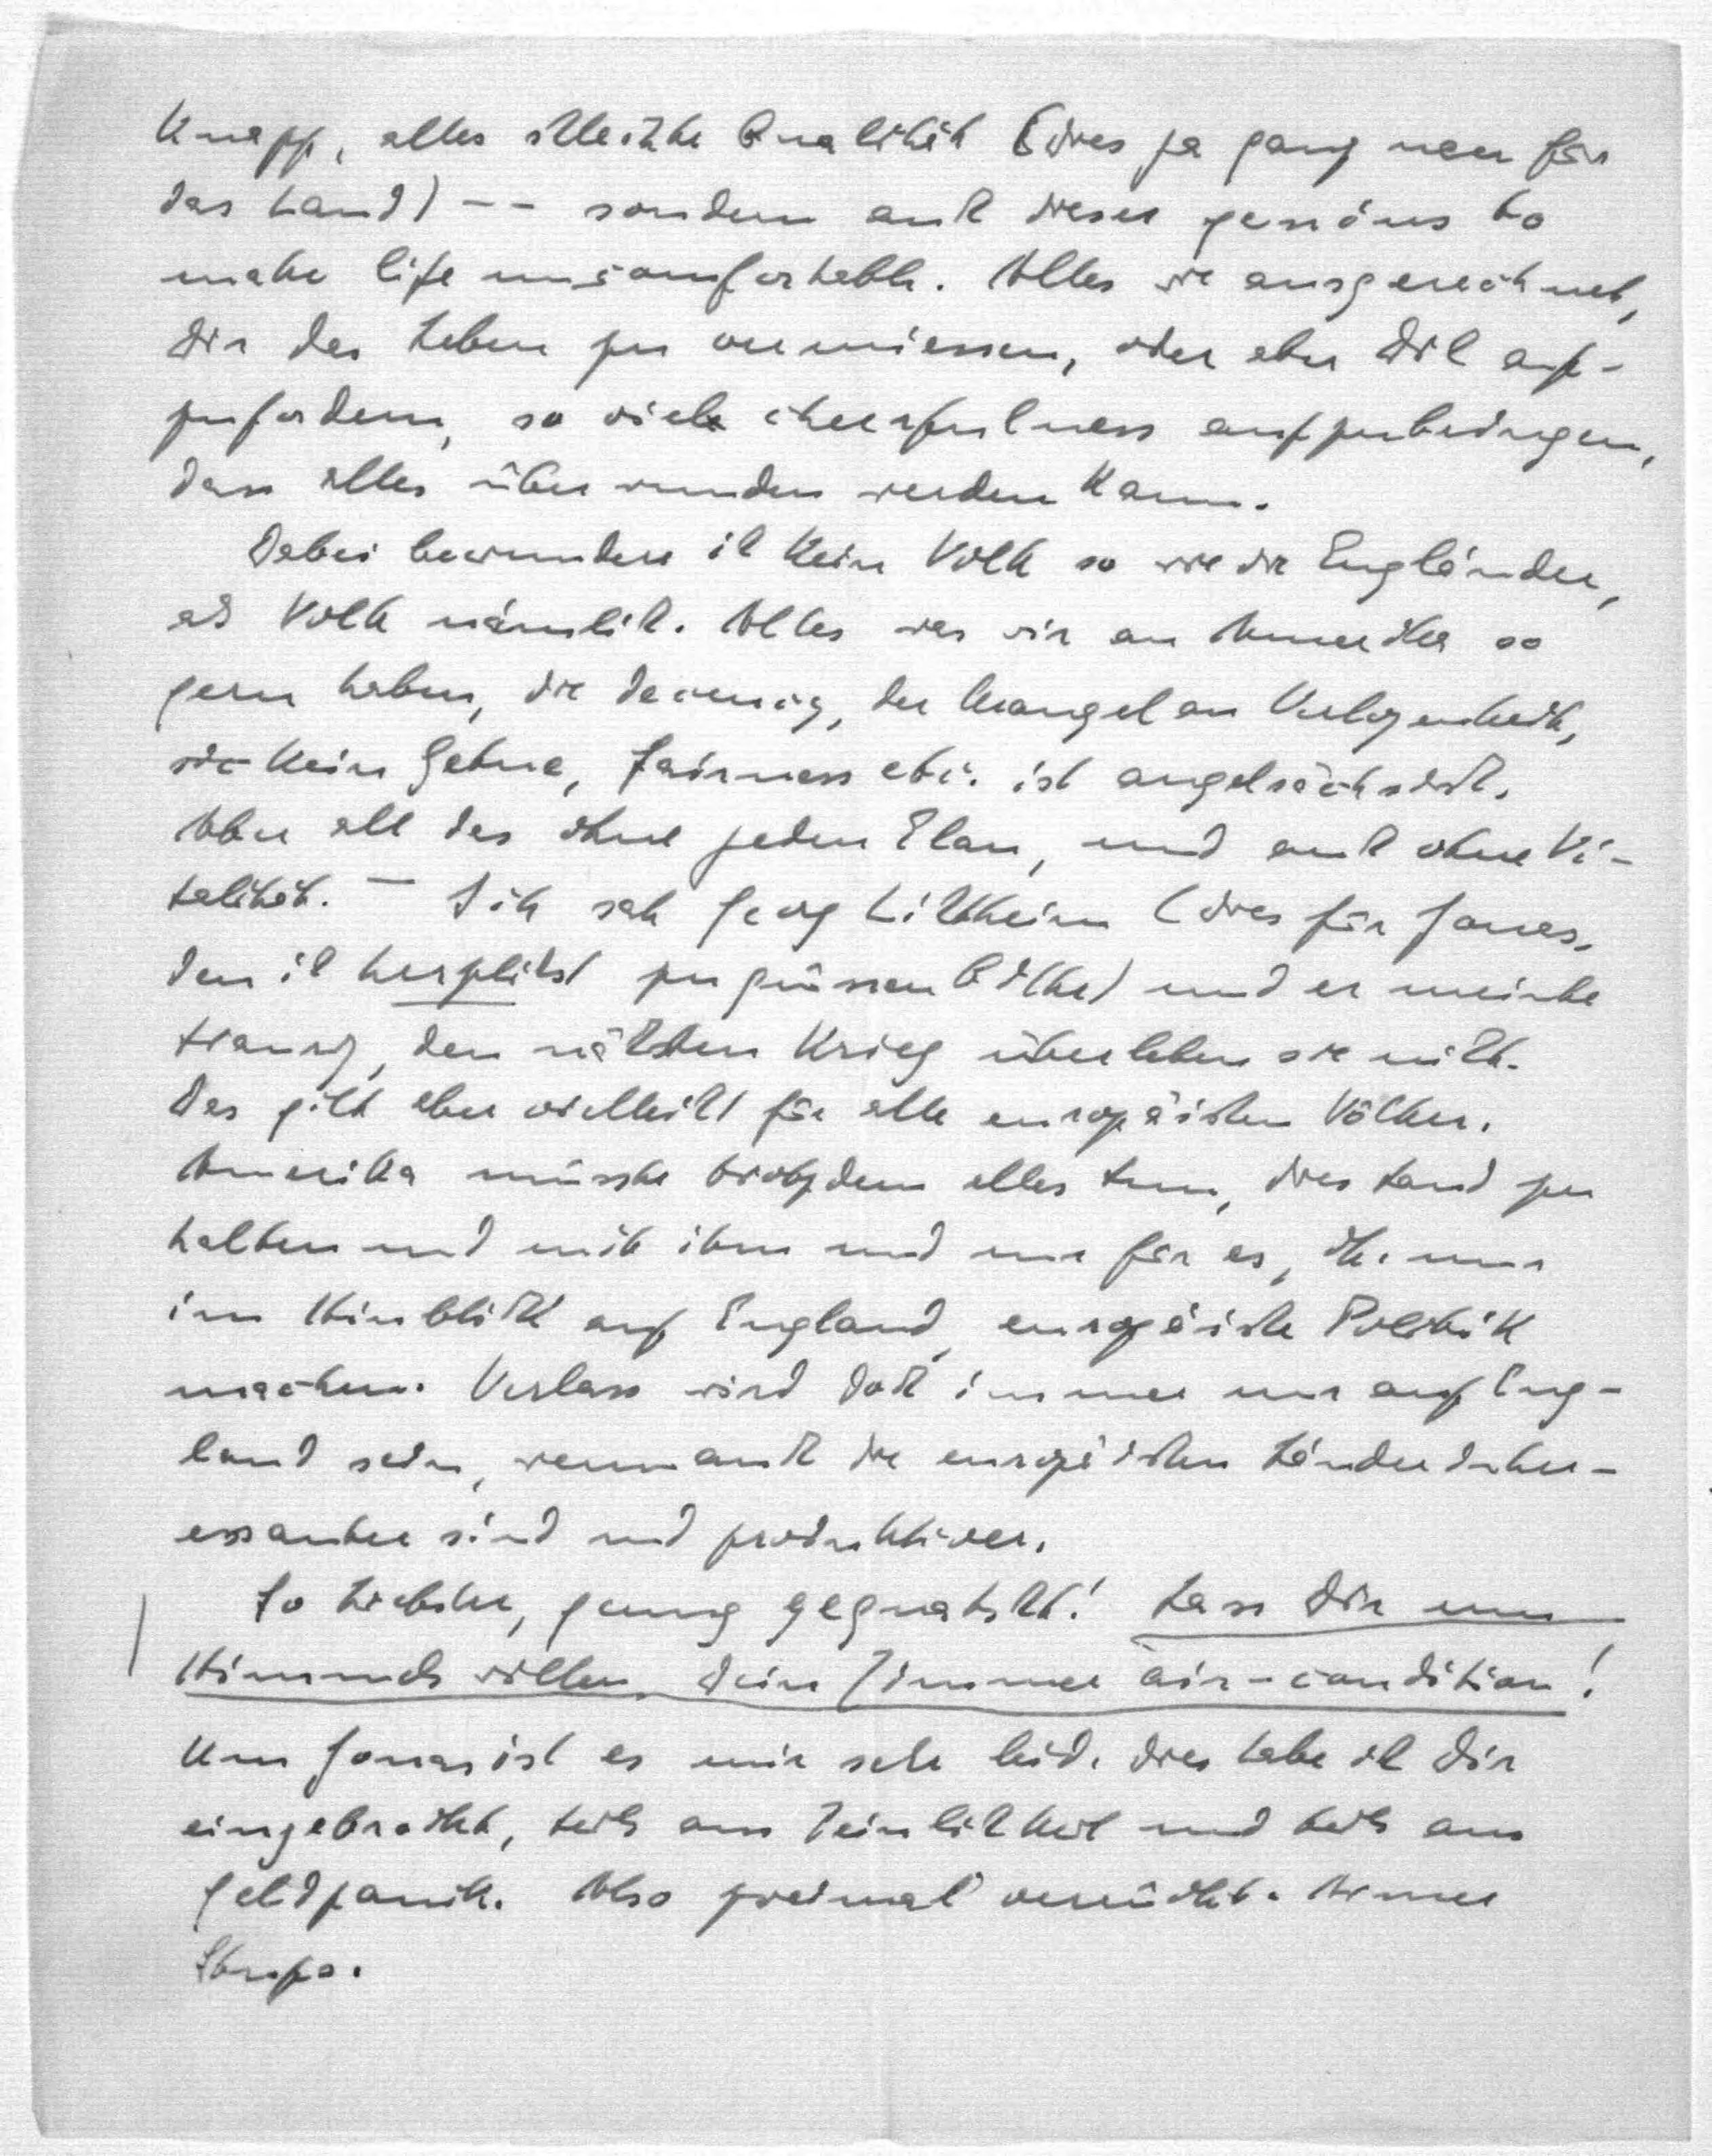 knapp, alles schlechte Qualität (dies ja ganz neu für
das Land) -- sondern auch dieser genius to
make life uncomfortable. Alles wie ausgerechnet,
Dir das Leben zu vermiessen, oder aber Dich auf-
zufordern, so viel cheerfulness aufzubringen,
dass alles überwunden werden kann.
Dabei bewundere ich kein Volk so wie die Engländer,
als Volk nämlich. Alles was wir an Amerika so
gern haben, die decency, der Mangel an Verlogenheit,
sich kein Getue, fairness etc. ist angelsächsisch.
Aber all das ohne jeden Elan, und auch ohne Vi-
talität. — Ich sah Georg Lichtheim (dies für Jonas,
den ich herzlichst zu grüssen bitte) und er meinte
traurig, den nächsten Krieg überleben sie nicht.
Das gilt aber vielleicht für alle europäischen Völker.
Amerika müsste trotzdem alles tun, dies Land zu
halten und mit ihm und nur für es, dh. nur
im Hinblick auf England, europäische Politik
machen. Verlass wird doch immer nur auf Eng-
land sein, wenn auch die europäischen Länder inter-
essanter sind und produktiver.
So Liebster, genug gequatscht! Lass Dir um
Himmels willen Dein Zimmer air-condition!
Um Jonas ist es mir sehr leid. Dies habe ich Dir
eingebrockt, teils aus Peinlichkeit und teils aus
Geldpanik. Also zweimal verrückt. Armer
Stups.